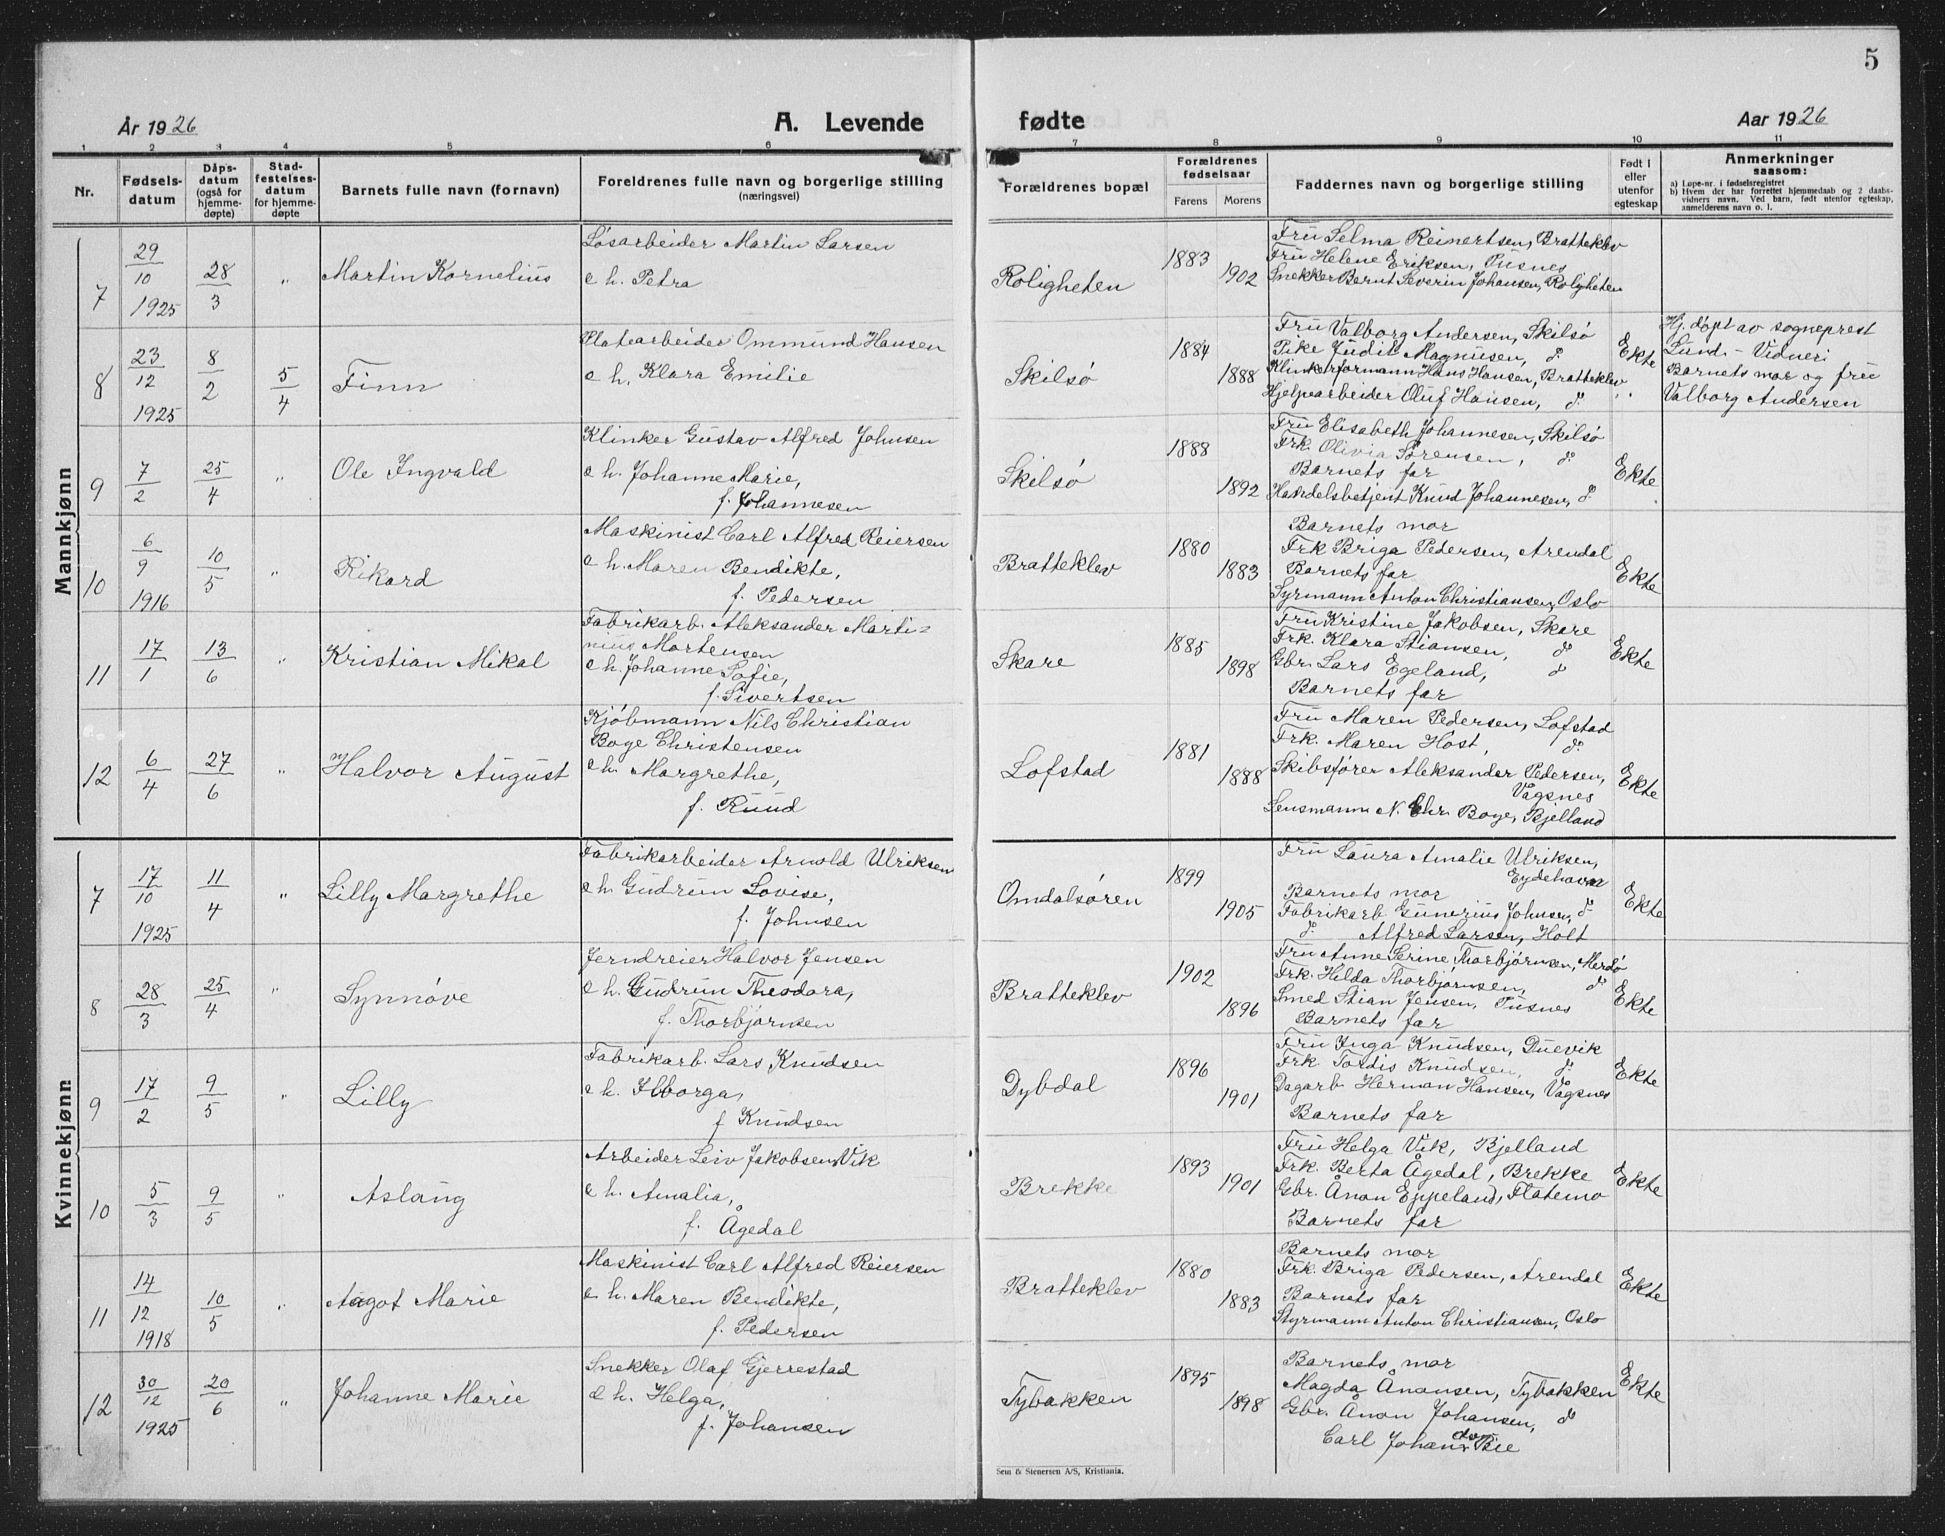 5
År 1926
A. Levende
fødte
Aar 1926
1 2 3 4 5 6 7 8 9 10 11
Nr.
Fødsels-
datum
Dåps-
datum
(også for
hjemme-
døpte)
Stad-
festelses-
datum
for hjemme-
døpte
Barnets fulle navn (fornavn)
Foreldrenes fulle navn og borgerlige stilling
(næringsvei)
Forældrenes bopæl
Forældrenes
fødselsaar
Farens
Morens
Faddernes navn og borgerlige stilling
Født i
eller
utenfor
egteskap
Anmerkninger
saasom:
a) Løpe-nr. i fødselsregistret
b) Hvem der har forrettet hjemmedaab og 2 daabs-
vidners navn. Ved barn, født utenfor egteskap,
anmelderens navn o. l.
Mannkjønn
7
29/10 1925
28/3
"
Martin Kornelius
Løsarbeider Martin Larsen
e h. Petra
Roligheten
1883
1902
Fru Selma Reinertsen, Bratteklev
Fru Helene Eriksen, Pusnes
Snekker Bernt Severin Johansen, Roligheten
8
23/12 1925
8/2
5/4
Finn
Platearbeider Ommund Hansen
e h. Klara Emilie
Skilsø
1884
1888
Fru Valborg Andersen, Skilsø
Pike Judit Magnusen, do
Klinkerformann Hans Hansen, Bratteklev
Hjelpearbeider Oluf Hansen, do
Ekte
Hj. døpt av sogneprest
Lund - Vidner:
Barnets mor og fru
Valborg Andersen
9
7/2
25/4
"
Ole Ingvald
Klinker Gustav Alfred Johnsen
e h. Johanne Marie,
f. Johannesen
Skilsø
1888
1892
Fru Elisabeth Johannesen, Skilsø
Frk. Olivia Sørensen, do
Barnets far
Handelsbetjent Knud Johannesen, do
Ekte
10
6/9 1916
10/5
"
Rikard
Maskinist Carl Alfred Reiersen
e h. Maren Bendikte,
f. Pedersen
Bratteklev
1880
1883
Barnets mor
Frk Briga Pedersen, Arendal
Barnets far
Syrmann Anton Christiansen, Oslo
Ekte
11
17/1
13/6
"
Kristian Mikal
Fabrikarb. Aleksander Marti-
nius Mortensen
e h. Johanne Sofie,
f. Sivertsen
Skare
1885
1898
Fru Kristine Jakobsen, Skare
Frk. Klara Stiansen, do
Gbr. Lars Egeland, do
Barnets far
Ekte
12
6/4
27/6
"
Halvor August
Kjøbmann Nils Christian
Boye Christensen
e h. Margrethe,
f. Ruud
Lofstad
1881
1888
Fru Maren Pedersen, Lofstad
Frk. Maren Host, do
Skibsfører Aleksander Pedersen,
Vågsnes
Lensmann N. Chr. Boye, Bjelland
Ekte
Kvinnekjønn
7
17/10 1925
11/4
"
Lilly Margrethe
Fabrikarbeider Arnold Ulriksen
e h. Gudrun Lovise,
f. Johnsen
Omdalsøren
1899
1905
Fru Laura Amalie Ulriksen,
Eydehavn
Barnets mor
Fabrikarb Gunerius Johnsen, do
do Alfred Larsen, Holt
Ekte
8
28/3
25/4
"
Synnøve
Jerndreier Halvor Jensen
e h. Gudrun Theodora,
f. Thorbjørnsen
Bratteklev
1902
1896
Fru Anne Serine Thorbjørnsen, Merdø
Frk. Hilda Thorbjørnsen, do
Smed Stian Jensen, Pusnes
Barnets far
Ekte
9
17/2
9/5
"
Lilly
Fabrikarb. Lars Knudsen
e h. Ilborga,
f Knudsen
Dybdal
1896
1901
Fru Inga Knudsen, Duevik
Frk Tordis Knudsen, do
Dagarb Herman Hansen, Vågsnes
Barnets far
Ekte
10
5/3
9/5
"
Aslaug
Arbeider Leiv Jakobsen Vik
e h. Amalia,
f. Ågedal
Brekke
1893
1901
Fru Helga Vik, Bjelland
Frk. Berta Ågedal, Brekke
Gbr. Ånon Eppeland, Flatemo
Barnets far
Ekte
11
14/12 1918
10/5
"
Aagot Marie
Maskinist Carl Alfred Reiersen
e h. Maren Bendikte,
f. Pedersen
Bratteklev
1880
1883
Barnets mor
Frk. Briga Pedersen, Arendal
Barnets far
Styrmann Anton Christiansen, Oslo
Ekte
12
30/12 1925
20/6
"
Johanne Marie
Snekker Olaf Gjerrestad
e h. Helga,
f. Johansen
Tybakken
1895
1898
Barnets mor
Magda Ånonsen, Tybakken
Gbr. Ånon Johansen, do
Carl Johan Bie
Ekte
Sem & Stenersen A/S, Kristiania.